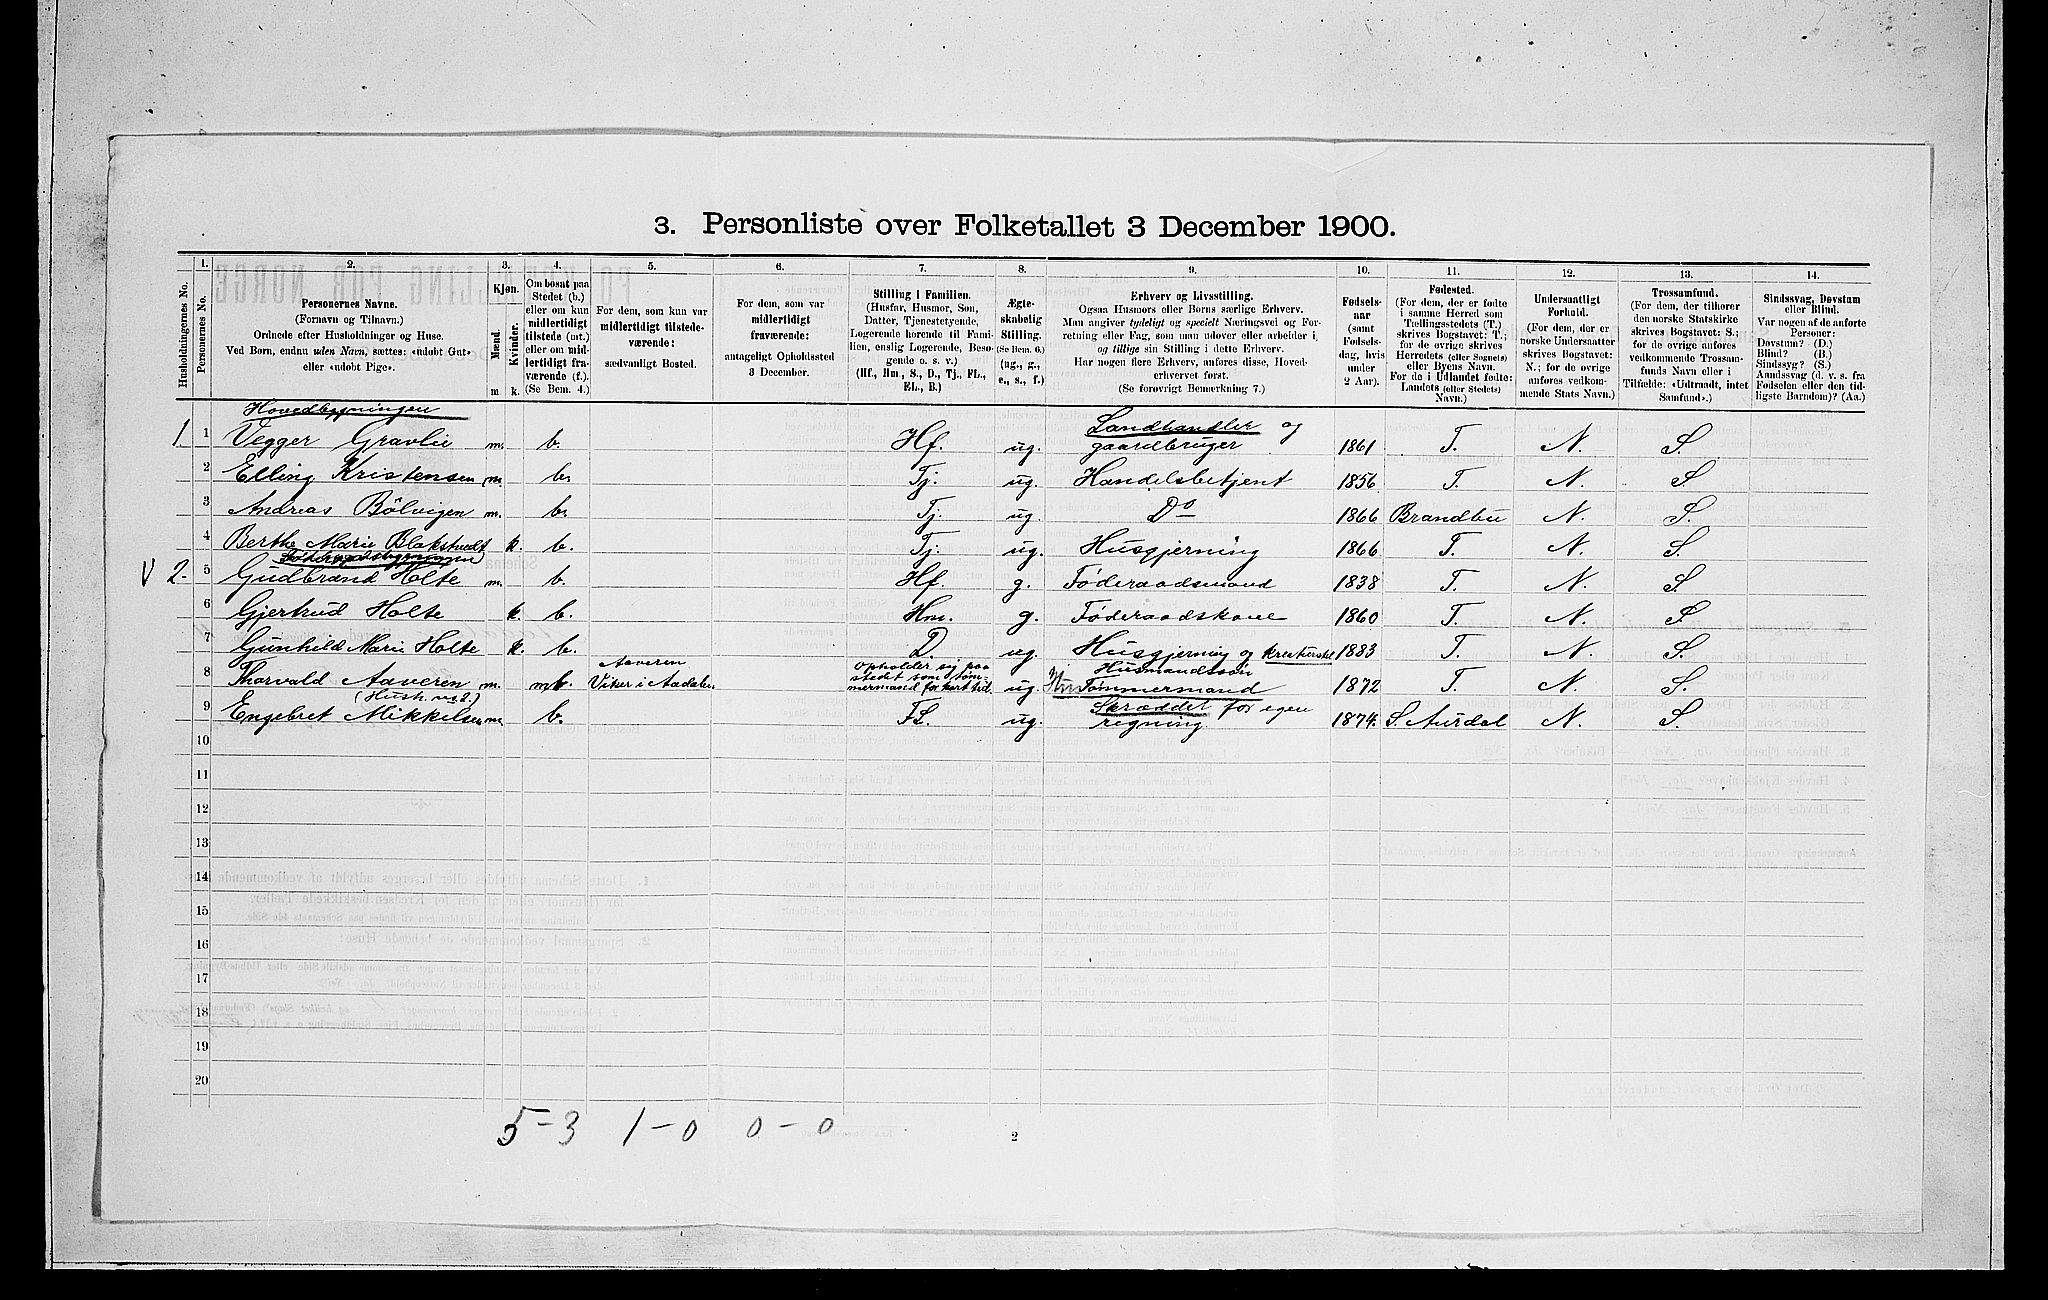 3. Personliste over Folketallet 3 December 1900.
1. 2. 3. 4. 5. 6. 7. 8. 9. 10. 11. 12. 13. 14.
Husholdningernes No.
Personernes No.
Personernes Navne.
(Fornavn og Tilnavn.)
Ordnede efter Husholdninger og Huse.
Ved Børn, endnu uden Navn, sættes: «udøbt Gut»
eller «udøbt Pige».
Kjøn.
Mænd.
Kvinder.
m. k.
Om bosat paa
Stedet (b.)
eller om kun
midlertidigt
tilstede (mt.)
eller om mid-
lertidigt fra-
værende (f.).
(Se Bem. 4.)
For dem, som kun var
midlertidigt tilstede-
værende:
sædvanligt Bosted.
For dem, som var
midlertidigt
fraværende:
antageligt Opholdssted
3 December.
Stilling i Familien.
(Husfar, Husmor, Søn,
Datter, Tjenestetyende,
Logerende hørende til Fami-
lien, enslig Logerende, Besø-
gende o. s. v.)
(Hf., Hm., S., D., Tj., FL.,
EL., B.)
Ægte-
skabelig
Stilling.
(Se Bem. 6.)
(ug., g.,
e., s., f.)
Erhverv og Livsstilling.
Ogsaa Husmors eller Børns særlige Erhverv.
Man angiver tydeligt og specielt Næringsvei og For-
retning eller Fag, som man udøver eller arbeider i,
og tillige sin Stilling i dette Erhverv.
Har nogen flere Erhverv, anføres disse, Hoved-
erhvervet først.
(Se forøvrigt Bemærkning 7.)
Fødsels-
aar
(samt
Fødsels-
dag, hvis
under
2 Aar).
Fødested.
(For dem, der er fødte
i samme Herred som
Tællingsstedets (T.)
skrives Bogstavet: T.;
for de øvrige skrives
Herredets (eller Sognets)
eller Byens Navn.
For de i Udlandet fødte:
Landets (eller Stedets)
Navn.)
Undersaatligt
Forhold.
(For dem, der er
norske Undersaatter
skrives Bogstavet:
N.; for de øvrige
anføres vedkom-
mende Stats Navn.)
Trossamfund.
(For dem, der tilhører
den norske Statskirke
skrives Bogstavet: S.;
for de øvrige anføres
vedkommende Trossam-
funds Navn eller i
Tilfælde: «Udtraadt, intet
Samfund».)
Sindssvag, Døvstum
eller Blind.
Var nogen af de anførte
Personer:
Døvstum? (D.)
Blind? (B.)
Sindssyg? (S.)
Aandssvag (d. v. s. fra
Fødselen eller den tid-
ligste Barndom)? (Aa.)
Hovedbygningen
1 1 Vegger Gravlie m. b. Hf. ug. Landhandler og gaardbruger 1861 T. N. S.
2 Elling Kristensen m. b. Tj. ug. Handelsbetjent 1856 T. N. S
3 Andreas Bölvigen m. b. Tj. ug. Do 1866 Brandbu N. S.
4 Berthe Marie Blakstvedt k. b. Tj. ug. Husgjerning 1866 T. N. S.
Föderaadsbygningen
V 2. 5 Gudbrand Holte m. b. Hf. g. Føderaadsmand 1838 T. N. S.
6 Gjertrud Holte k. b. Hm. g. Føderaadskone 1860 T. N. S
7 Gunhild Marie Holte k. b. D. ug. Husgjerning og kreaturstel 1883 T. N. S.
8 Thorvald Aaveren m. mt. Aaveren Viker i Aadalen opholder sig paa stedet som tøm- mermand for kort tid. ug. Husmandssön Tömmermand 1872 T. N. S.
(Hush. no 2.)
9 Engebret Mikkelsen m. b. FL. ug. Skrædder for egen regning 1874. S. Aurdal N. S.
10
11
12
13
14
15
16
17
18
19
20
5-3 1-0 0-0
2